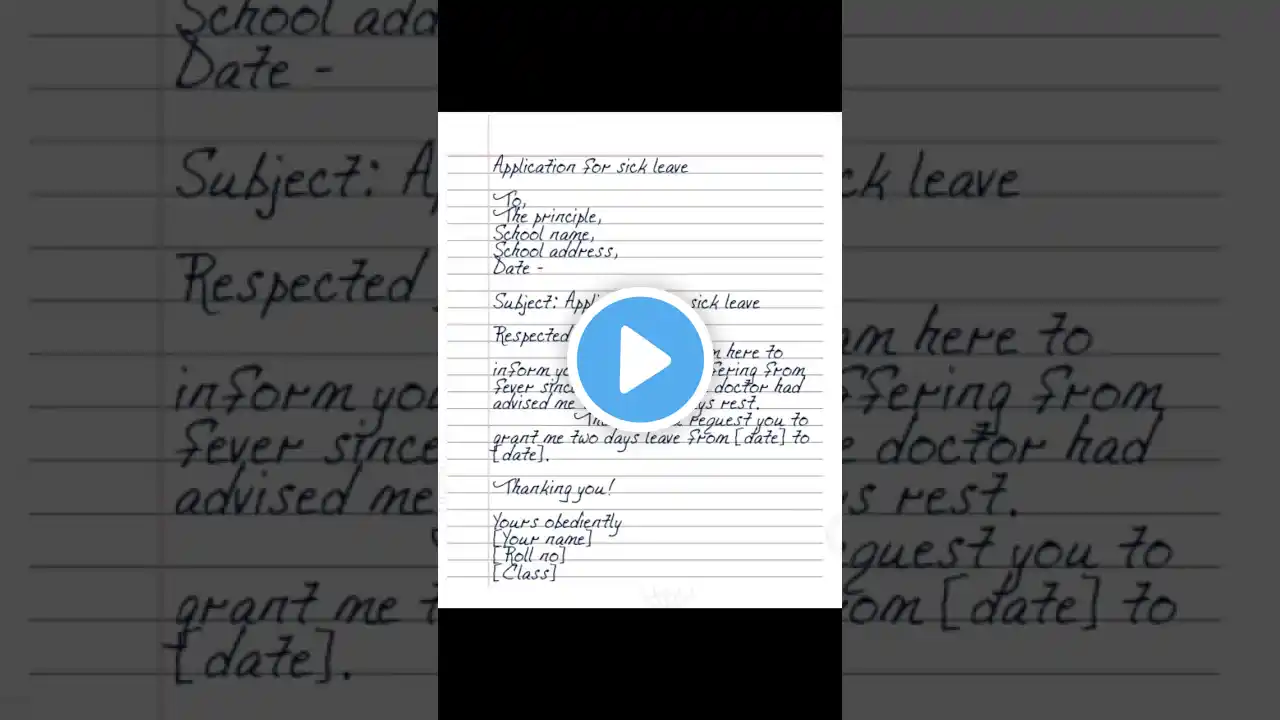 Application for sick leave
To,
The principle,
School name,
School address,
Date -
Subject: sick leave
Respected
here to
inform from
fever since doctor had
advised me rest.
request you to
grant me two days leave from [date] to
[date].
Thanking you!
Yours obediently
[Your name]
[Roll no]
[Class]